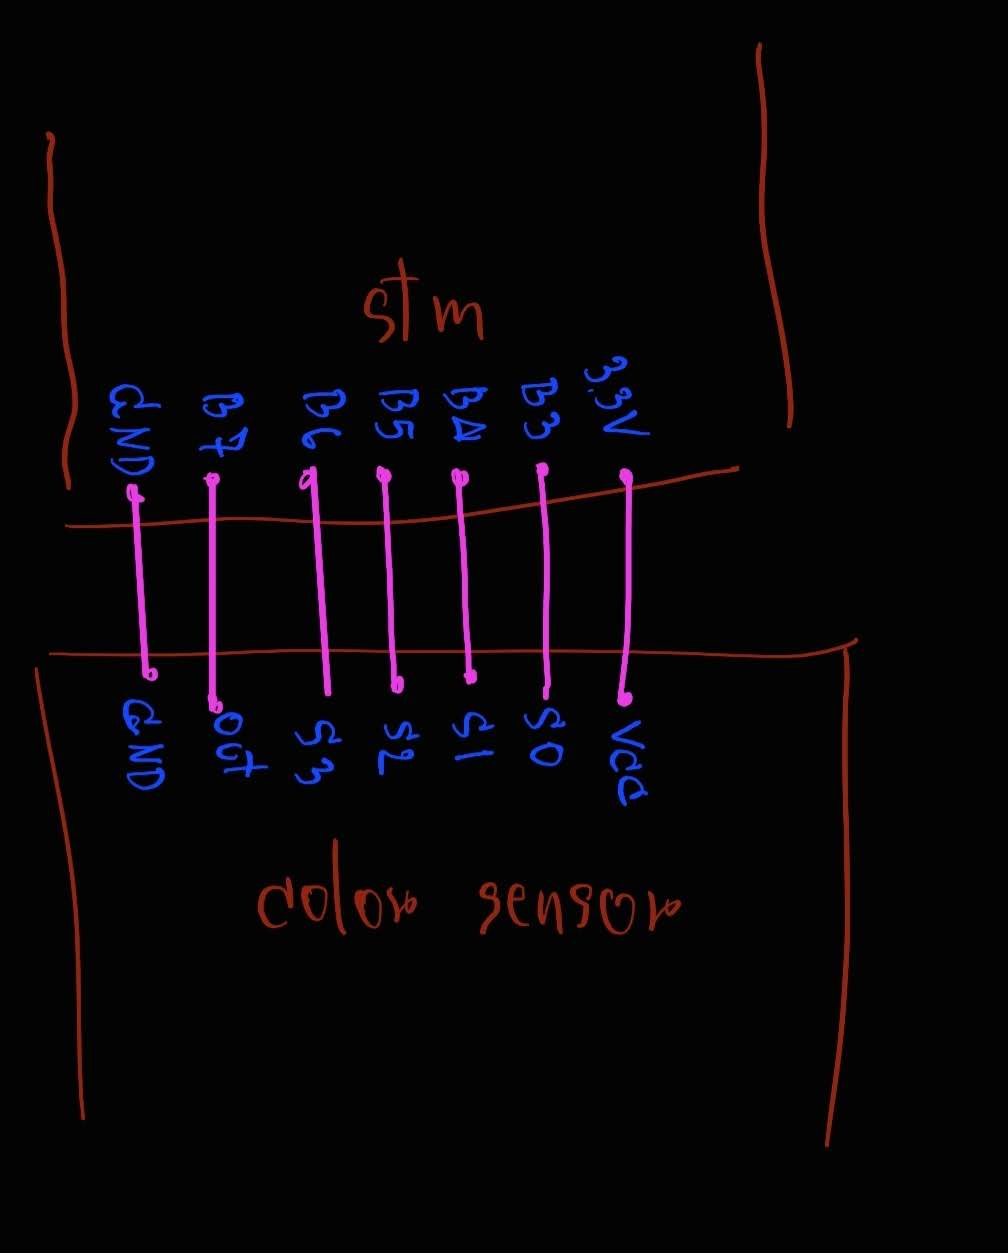 stm
GND B7 B6 B5 B4 B3 3.3V
GND OUT S3 S2 S1 S0 VCC
color sensor